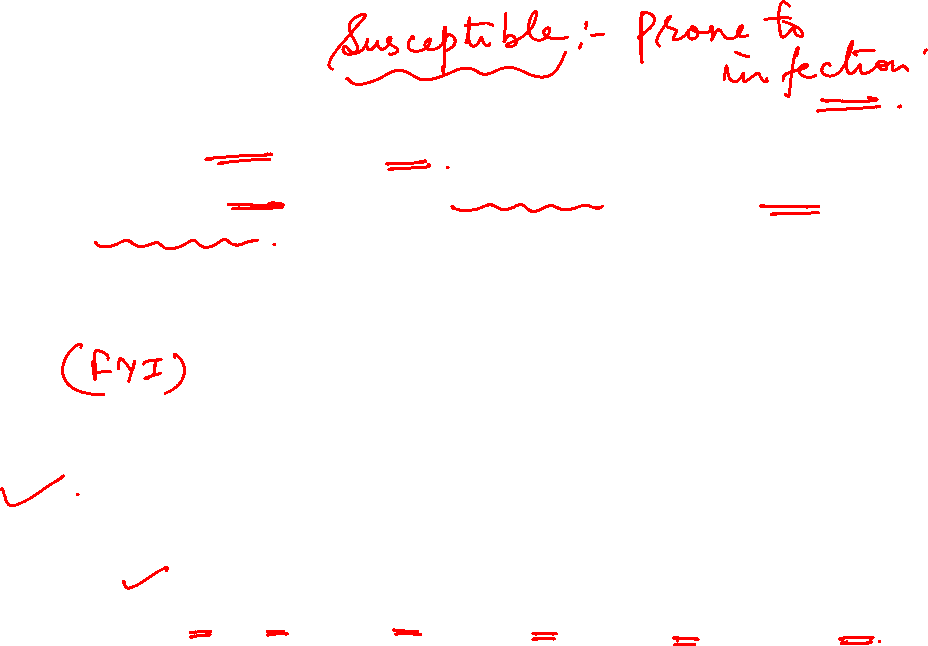 Susceptible :- Prone to
infection.
(FYI)